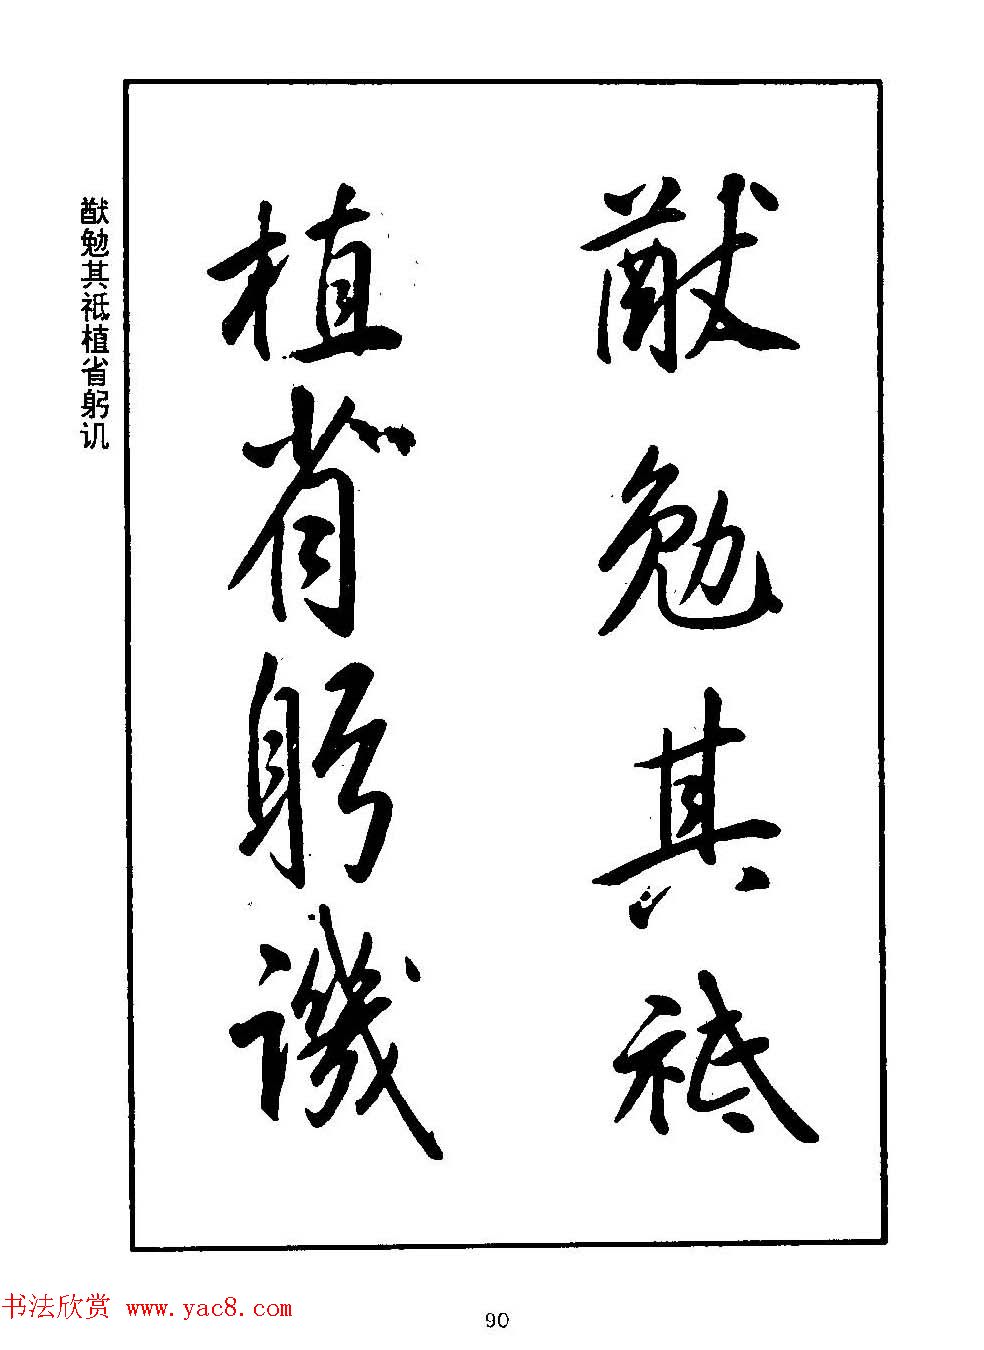 猷勉其祗
植省躬譏
猷勉其祗植省躬讥
书法欣赏 www.yac8.com
90